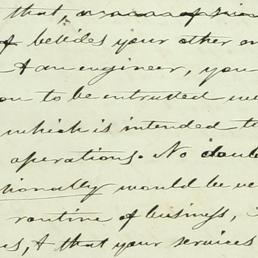 that
of besides your other
& an engineer, you
to be entrusted
which is intended to
operations. No doubt
would be
routine of business,
& that your services